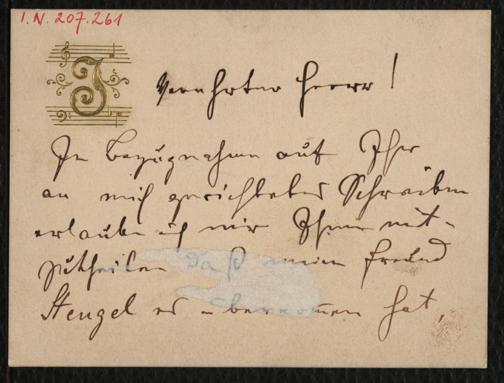 I.N. 207.261
J
Verehrter Herr!
In Bezugnahme auf Ihr
an mich gerichtetes Schreiben
erlaube ich mir Ihnen mit-
zutheilen daß mein Freund
Stengel es übernommen hat,